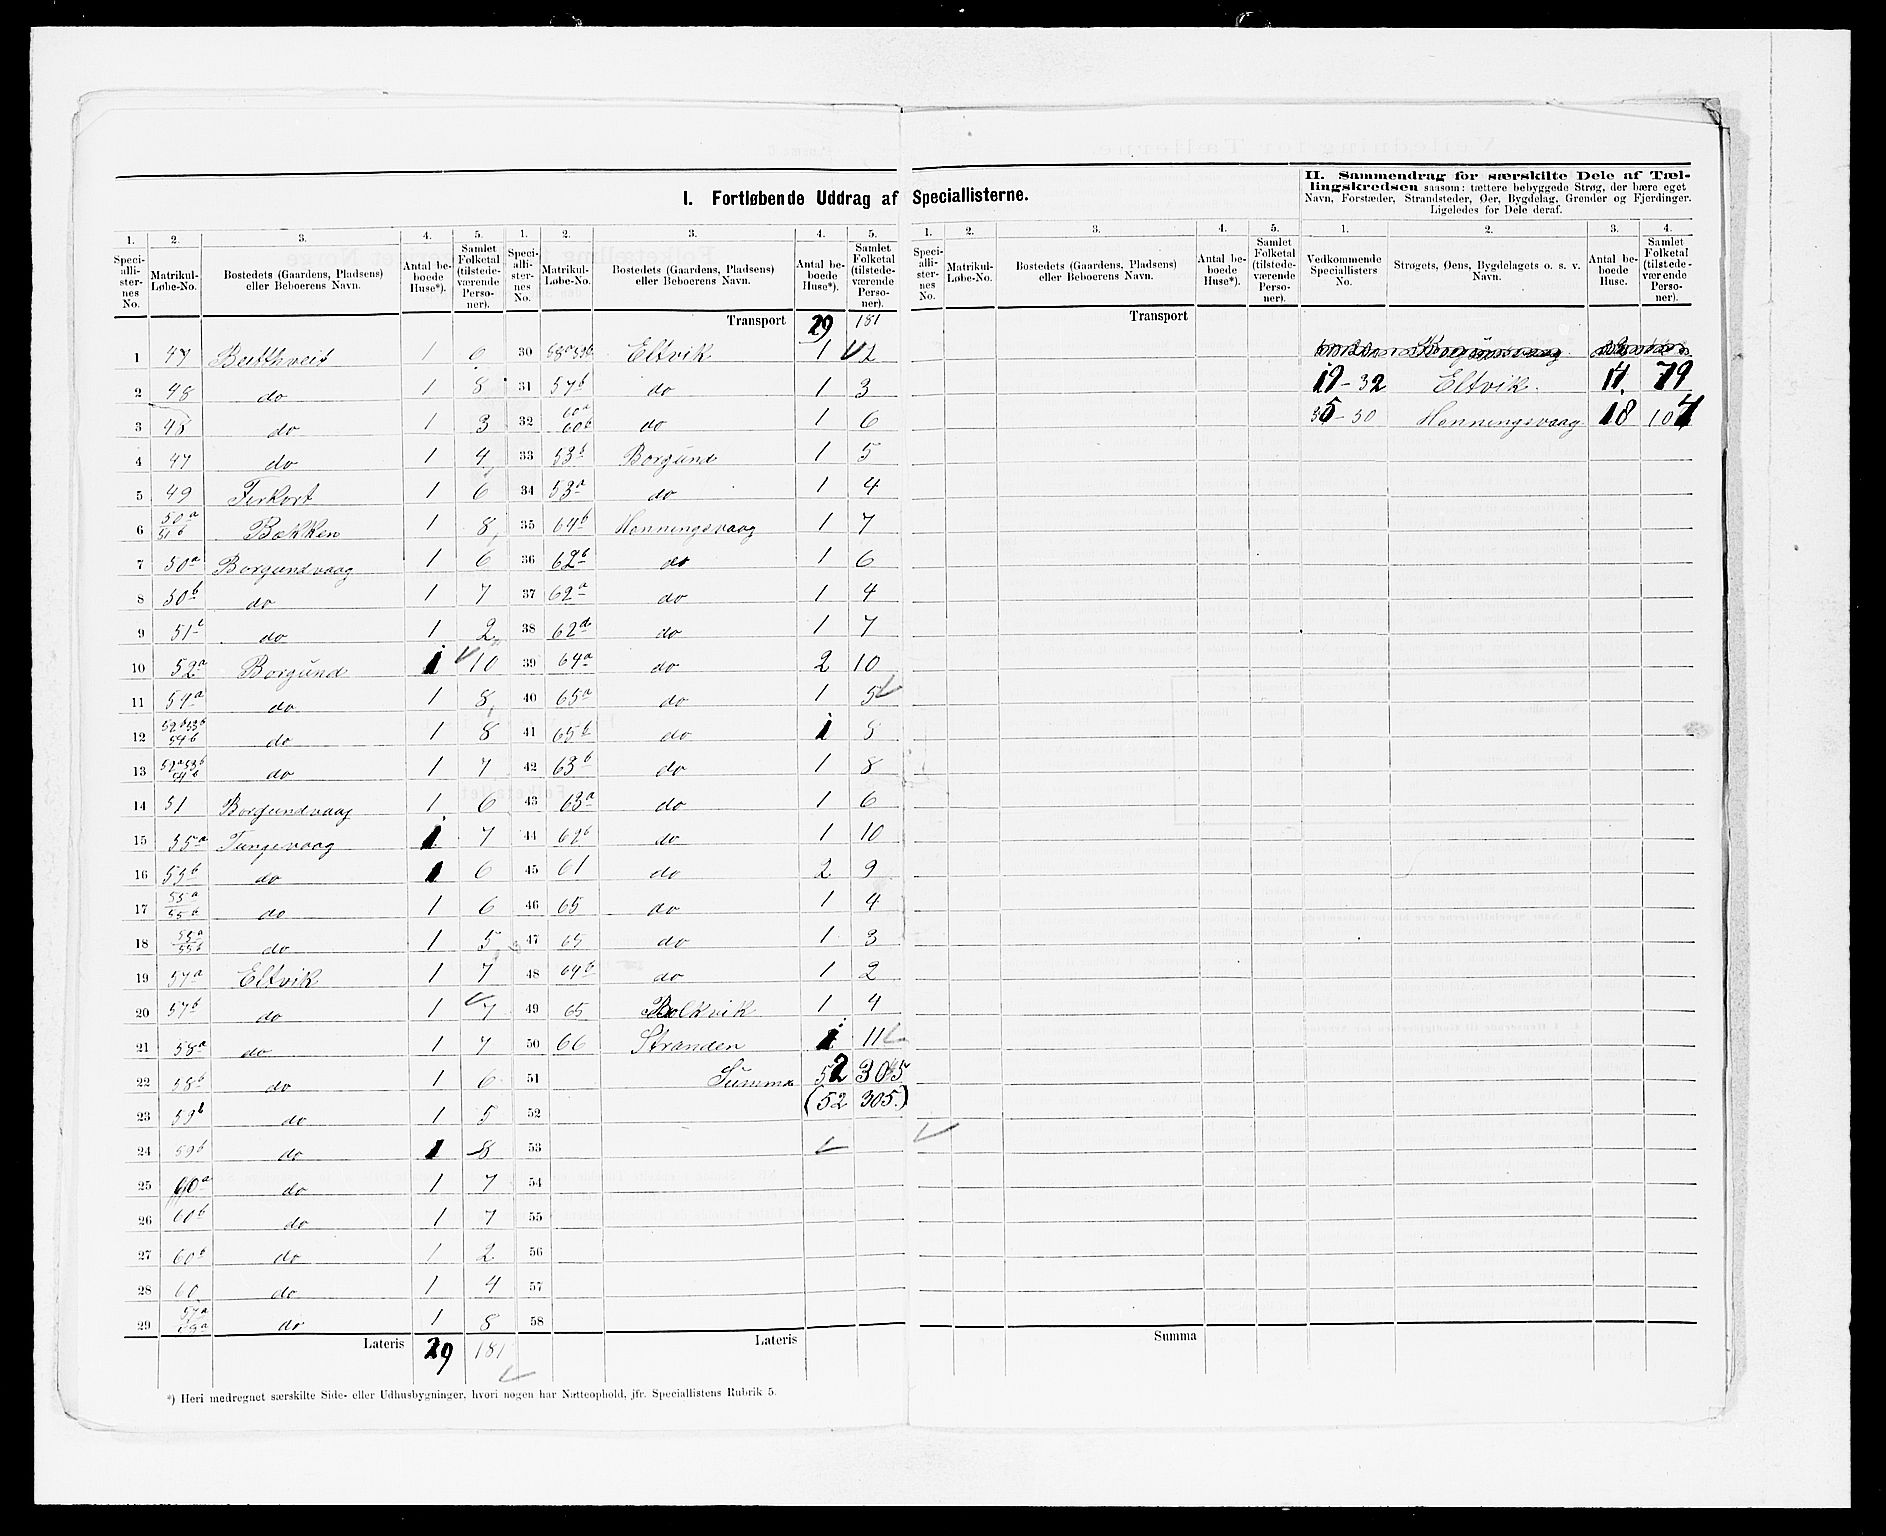 I. Fortløbende Uddrag af Speciallisterne.
II. Sammendrag for særskilte Dele af Tællingskredsen saasom: tættere bebyggede Strøg, der bære eget
Navn, Forstæder, Strandsteder, Øer, Bygdelag, Grender og Fjerdinger.
Ligeledes for Dele deraf.
1. Speciallisternes No. 2. Matrikul-Løbe-No. 3. Bostedets (Gaardens, Pladsens) eller Beboerens Navn. 4. Antal beboede Huse*). 5. Samlet Folketal (tilstedeværende Personer).
1 47 1 6
2 48 do 1 8
3 48 do 1 3
4 47 do 1 4
5 49 Ferkort 1 6
6 50a 51b Bakken 1 8
7 50a Borgundvaag 1 6
8 50b do 1 7
9 51b do 1 2
10 52a Borgund 1 10
11 54a do 1 8
12 52b 53b 54b do 1 8
13 52a 53b 54b do 1 7
14 51 Borgundvaag 1 6
15 55a Tungevaag 1 7
16 55b do 1 6
17 55a 55b do 1 6
18 55a 55b do 1 5
19 57a Eltvik 1 7
20 57b do 1 7
21 58a do 1 7
22 58b do 1 6
23 59b do 1 5
24 59b do 1 8
25 60a do 1 7
26 60b do 1 7
27 60b do 1 2
28 60 do 1 4
29 57a do 1 8
Lateris 29 181
1. Speciallisternes No. 2. Matrikul-Løbe-No. 3. Bostedets (Gaardens, Pladsens) eller Beboerens Navn. 4. Antal beboede Huse*). 5. Samlet Folketal (tilstedeværende Personer).
Transport 29 181
30 58a 59b Eltvik 1 2
31 57b do 1 3
32 60a 60b do 1 6
33 53b Borgund 1 5
34 53a do 1 4
35 64b Henningsvaag 1 7
36 62b do 1 6
37 62a do 1 4
38 62d do 1 7
39 64a do 2 10
40 65a do 1 5
41 65b do 1 8
42 63b do 1 8
43 63a do 1 6
44 62b do 1 10
45 61 do 2 9
46 65 do 1 4
47 65 do 1 3
48 64b do 1 2
49 65 1 4
50 66 Stranden 1 11
51 Summa 52 305
52 (52 305.)
53
54
55
56
57
58
Lateris
1. Speciallisternes No. 2. Matrikul-Løbe-No. 3. Bostedets (Gaardens, Pladsens) eller Beboerens Navn. 4. Antal beboede Huse*). 5. Samlet Folketal (tilstedeværende Personer).
Transport
Summa
1. Vedkommende Speciallisters No. 2. Strøgets, Øens, Bygdelagets o. s. v. Navn. 3. Antal beboede Huse. 4. Samlet Folketal (tilstedeværende Personer).
19-32 Eltvik. 14. 79
35-50 Henningsvaag 18 104
*) Heri medregnet særskilte Side- eller Udhusbygninger, hvori nogen har Natteophold, jfr. Speciallistens Rubrik 5.